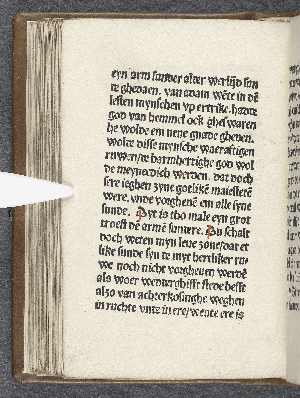 eyn arm sunder aller werlijd sun
te ghedaen. van adam wēte in dē
lesten mynschen vp ertrike. hadde
god van hemmel ock ghesworen
he wolde em nene gnade gheuen.
wolde disse mynsche waeraftigen
ruwen de barmhertighe god wol
de meynedisch werden. dat doch
sere ieghen syne gotlikē maiestetē
were. vnde vorgheuē em alle syne
sunde. Dyt is tho male eyn grot
troest dē armē sundere. Du schalt
doch weten myn leue sone dat et
like sunde syn te myt herliker ru
we noch nicht vorgheuen werdē
als woer wedderghifft stede hefft
also van achterkosinghe weghen
in ruchte vnte in ere wente ere is